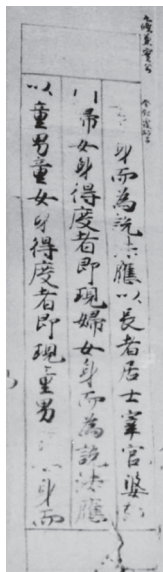 身而為說法應以長者居士宰官婆
婦女身得度者即現婦女身而為說法應
以童男童女身得度者即現童男身而